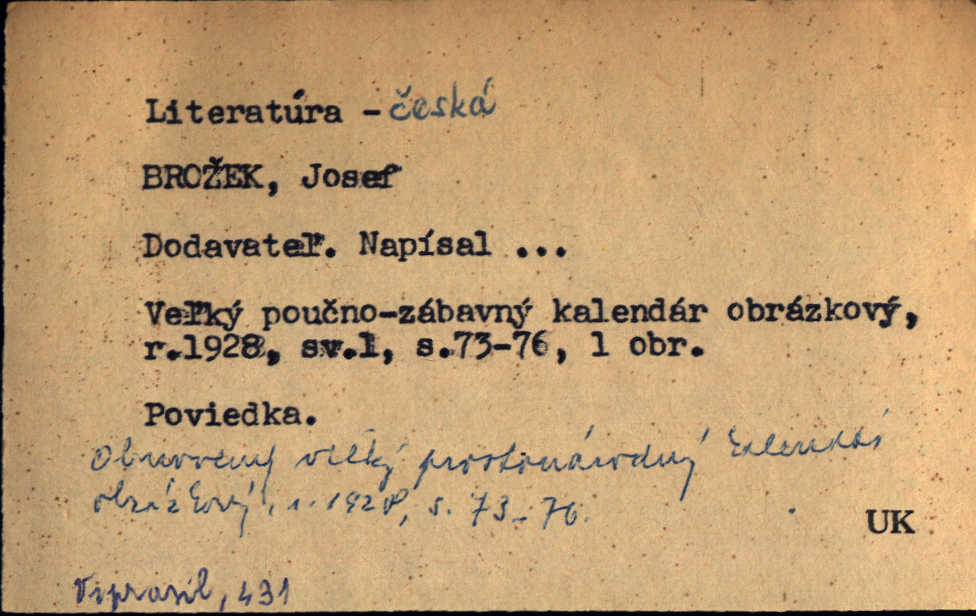 Literatúra - česká
BROŽEK, Josef
Dodavateľ. Napísal ...
Veľký poučno-zábavný kalendár obrázkový,
r.1928, sv.1, s.73-76, 1 obr.
Poviedka.
Obnovený veľký prostonárodný kalendár
obrázkový, r. 1928, s. 73-76.
UK
431